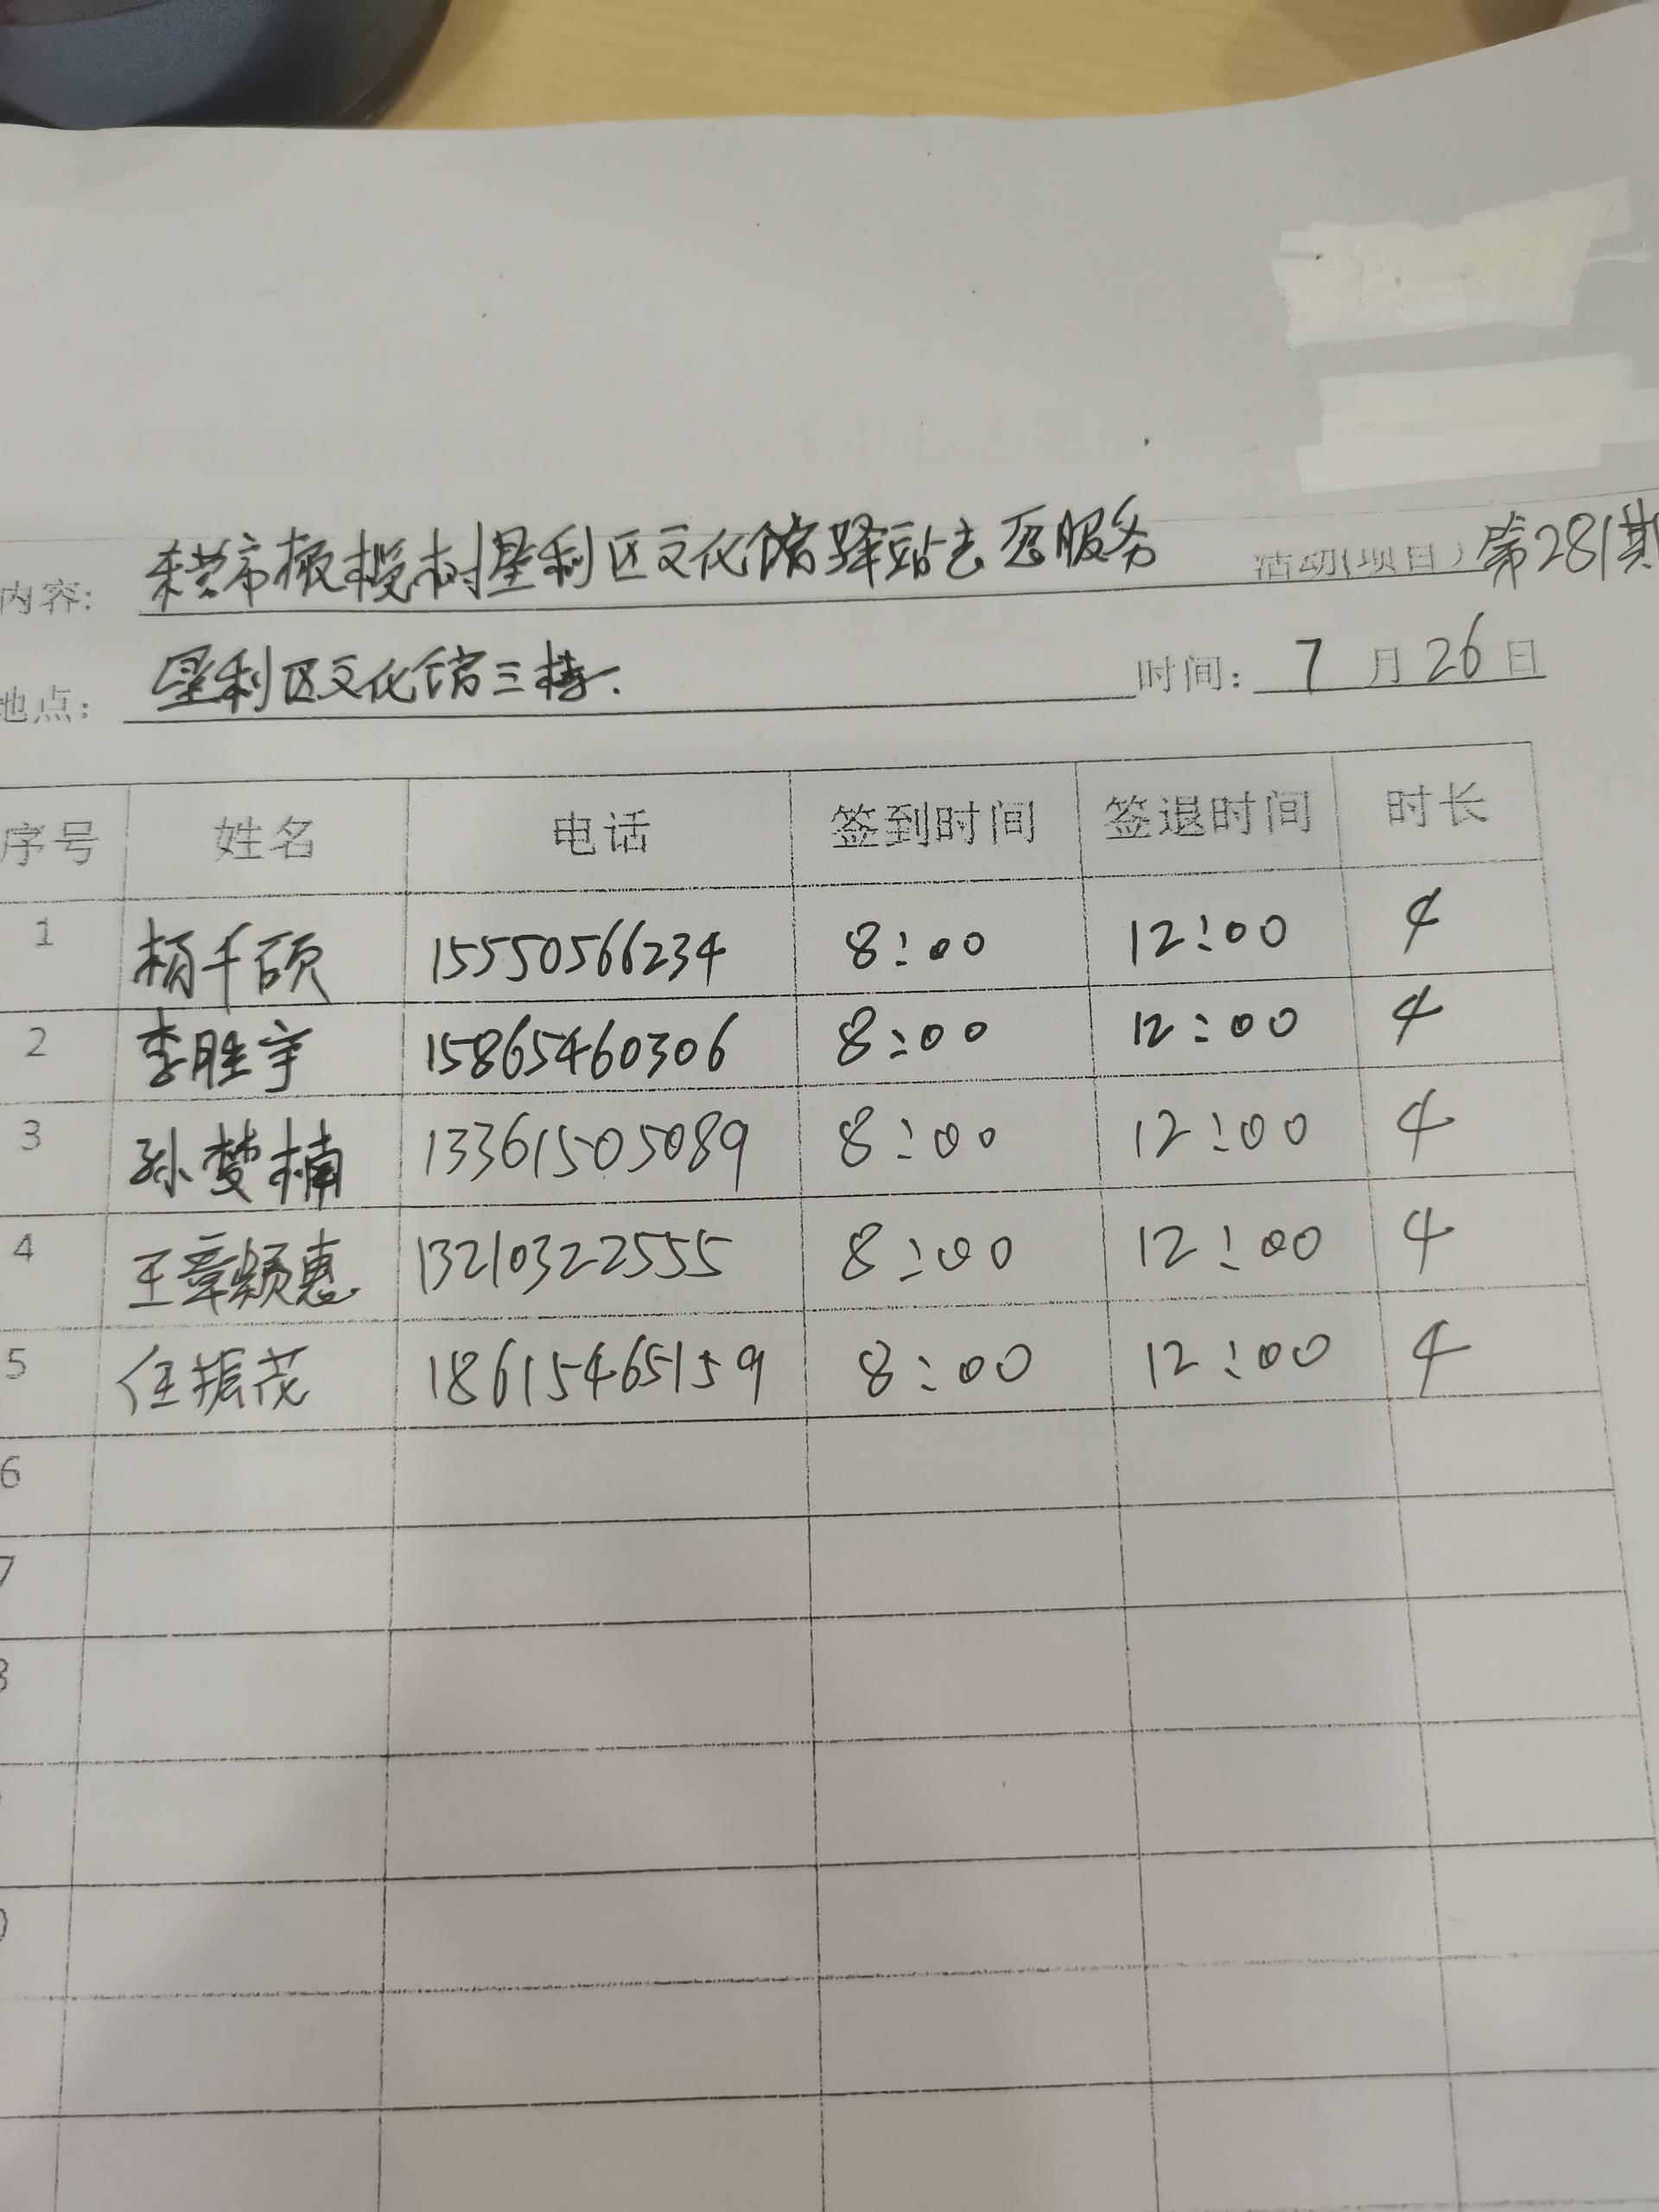 内容: 东营市橄榄树垦利区文化馆驿站志愿服务 活动(项目) 第281期
地点: 垦利区文化馆三楼. 时间: 7月26日
序号 姓名 电话 签到时间 签退时间 时长
1 杨千硕 15550566234 8:00 12:00 4
2 李胜宇 15865460306 8:00 12:00 4
3 孙梦楠 13361505089 8:00 12:00 4
4 王章颖惠 13210322555 8:00 12:00 4
5 任振茂 18615465159 8:00 12:00 4
6
7